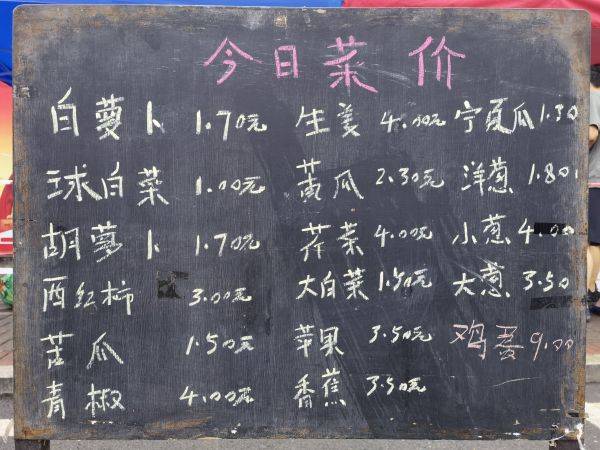 今日菜价
白萝卜 1.70元 生姜 4.00元 宁夏瓜 1.30
球白菜 1.00元 黄瓜 2.30元 洋葱 1.80
胡萝卜 1.70元 荠菜 4.00元 小葱 4.00
西红柿 3.00元 大白菜 1.50元 大葱 3.50
苦瓜 1.50元 苹果 3.50元 鸡蛋 9.00
青椒 4.00元 香蕉 3.50元